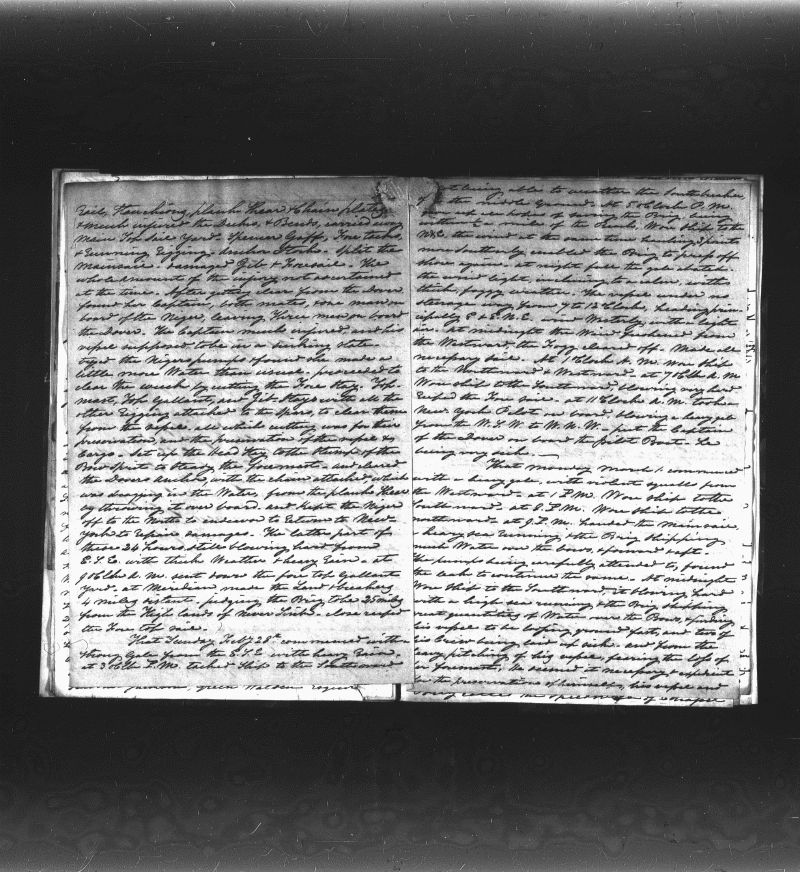 Rail, Stanchions, plank Shear & Chain plates
& much injured the Decks, & Bends, carried away
Main Top Sail Yard Spencer Gaff, Fore tacks,
& Running Rigging, broke Stocks split the
Mainsail. Damaged Gib & Foresail. The
whole amount the injury not ascertained
at the time. After getting clear from the Dover
found her Captain, both mates, & one man on
board of the Niger, leaving Three men on board
the Dover. The Captain much injured and his
vessel supposed to be in a sinking state
tryed the Nigers pumps & found she made a
little more Water than usual. proceeded to
clear the wreck by cutting the Fore Stay. Top-
mast, Top Gallant, and Gib Stays with all the
other Rigging attached to the Spars, to clear them
from the vessel all which cutting was for the
preservation, and the preservation of the vessel &
Cargo. Set up the Head Stay to the Stump of the
Bow Sprit to Steady the Foremast. and cleared
the Dovers Anchor, with the chain attached which
was dragging in the Water, from the plank Shear
by throwing it over board. and kept the Niger
off to the North to endeavor to Return to New
York to Repair damages. The latter part of
these 24 hours, still blowing hard from
E.S.E. with thick Weather & heavy Rain. at
9 O'Clk A.M. sent down the fore top Gallant
Yard. at Meridian made the Land & breakers
4 miles distant. judging the Brig, to be 25 miles
from the High lands of Never Sinks. close reefed
the Fore top sail.
That Sunday, Feby 28th commenced with
strong Gale from the E.S.E. with heavy Rain.
at 3 O'Clk P.M. tacked Ship to the Southward
not being able to weather the South breaker
of the middle Ground. At 5 O'Clock P.M.
hopes of saving the Brig, being
within a mile of the Beach, Wore Ship to the
N.E. the wind at the same time hauling 2 points
more Southerly, enabled the Brig to keep off
shore again. at night fall the gale abated.
the wind light, inclining to a calm, with
thick, foggy weather. The vessel under no
steerage way from 7 to 12 O'Clock, heading prin-
cipally E & E.N.E. wind Westerly, with a light
air. At midnight the Wind freshened from
the Westward, the Fogg cleared off. Made all
necessary sail. At 1 O'Clock A.M. Wore Ship
to the Northward & Westward. at 7 O'Clk A.M
Wore Ship to the Southward, blowing very hard
Reefed the Fore sail. at 11 O'Clock A.M. took a
New York Pilot on board, blowing a heavy gale
from the W.S.W. to W.N.W. put the Captain
of the Dover on board the pilot Boat. he
being very sick.
That monday March 1. commenced
with a heavy gale, with violent squalls from
the Westward. at 1 P.M. Wore Ship to the
Southward. at 8 P.M. Wore Ship to the
northward. at 9 P.M. handed the Main sail,
a heavy sea running & the Brig Shipping
much Water over the bows, forward & aft.
The pumps being carefully attended to, found
the leak to continue the same. At midnight
Wore Ship to the Southward, it blowing hard
with a high sea running & the Brig shipping
great quantities of Water over the Bows, finding
his vessel to be losing ground fast, and two of
his Crew being laid up sick. and from the
heavy pitching of his vessel fearing the loss of
his foremast, he deemed it necessary & expedient
for the preservation of himself, his vessel and